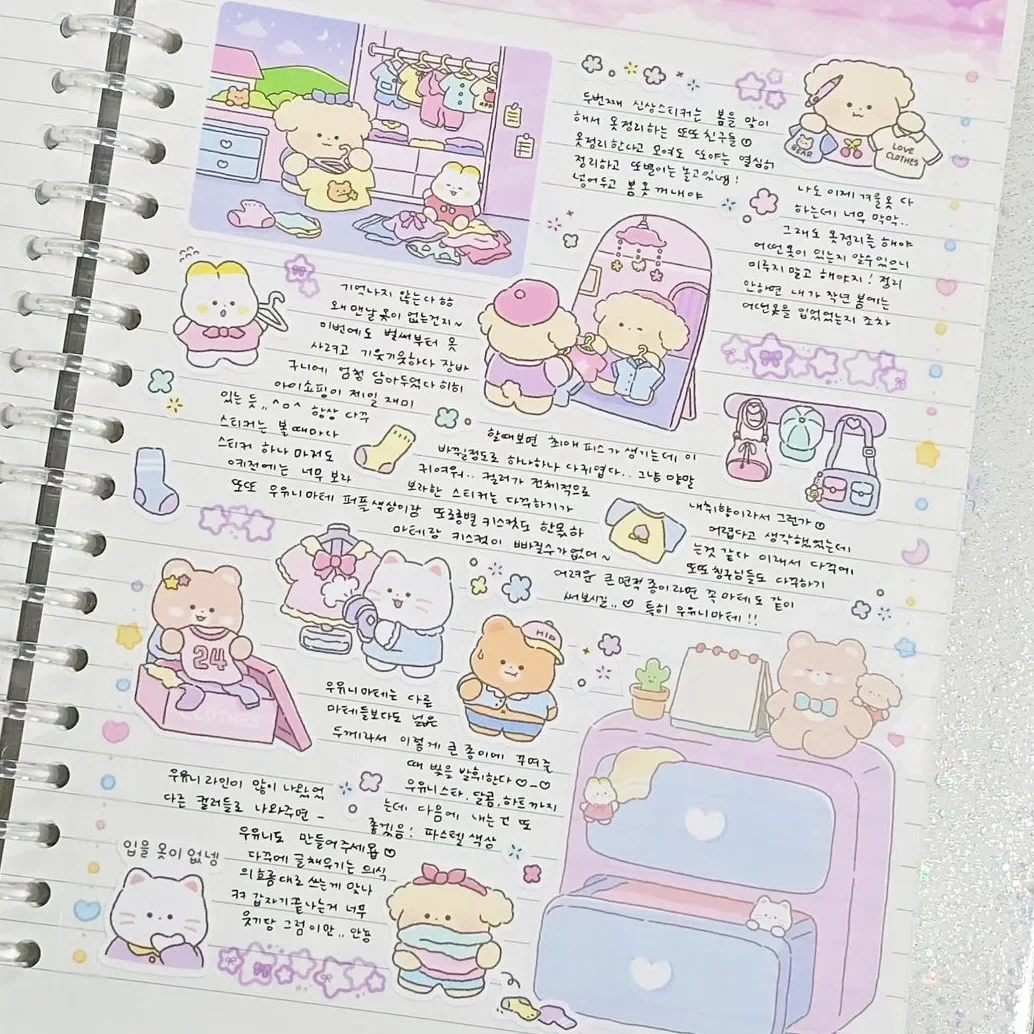 두번째 신상스티커는 봄을 맞이
해서 옷정리하는 또또친구들
옷정리한다고 모여도 또야는 열심히
정리하고 또별이는 놀고있넹!
넣어두고 봄옷 꺼내야
BEAR
LOVE
CLOTHES
나도 이제 겨울옷 다
하는데 너무 막막..
그래도 옷정리를 해야
어떤옷이 있는지 알수있으니
미루지 말고 해야지! 정리
안하면 내가 작년 봄에는
어떤옷을 입었었는지 조차
기억나지 않는다 항
왜 맨날 옷이 없는건지~
이번에도 벌써부터 옷
사려고 기웃기웃하다 장바
구니에 엄청 담아두었다 히히
아이쇼핑이 제일 재미
있는 듯,, ^o^ 항상 다꾸
스티커는 볼때마다
스티커 하나 마저도
예전에는 너무 보라
또또 우유니마테 퍼플색상이랑 또로롱별 키스컷도 한몫하
할때보면 최애 피스가 생기는데 이
바뀔정도로 하나하나 다귀엽다.. 그냥 양말
귀여워.. 컬러가 전체적으로
보라한 스티커는 다꾸하기가
마테랑 키스컷이 빠질수가없어~
내취향이라서 그런가
어렵다고 생각했었는데
는것 같다 이래서 다꾸에
또또칭구님들도 다꾸하기
어려운 큰 면적 종이라면 꼭 마테도 같이
써보시길..♡ 특히 우유니마테!!
24
CLOTHES
HIP
우유니마테는 다른
마테들보다도 넓은
두께라서 이렇게 큰종이에 꾸며줄
때 빛을 발휘한다♡-♡
우유니스타, 달콤, 하트까지
우유니 라인이 많이 나왔었
는데 다음에 내는건 또
다른 컬러들로 나와주면 -
좋겠음! 파스텔 색상
우유니도 만들어주세욥♡
다꾸에 글채우기는 의식
의흐름대로 쓰는게 맞나
ㅋㅋ 갑자기끝나는거 너무
웃기당 그럼이만.. 안뇽
입을 옷이 없넹